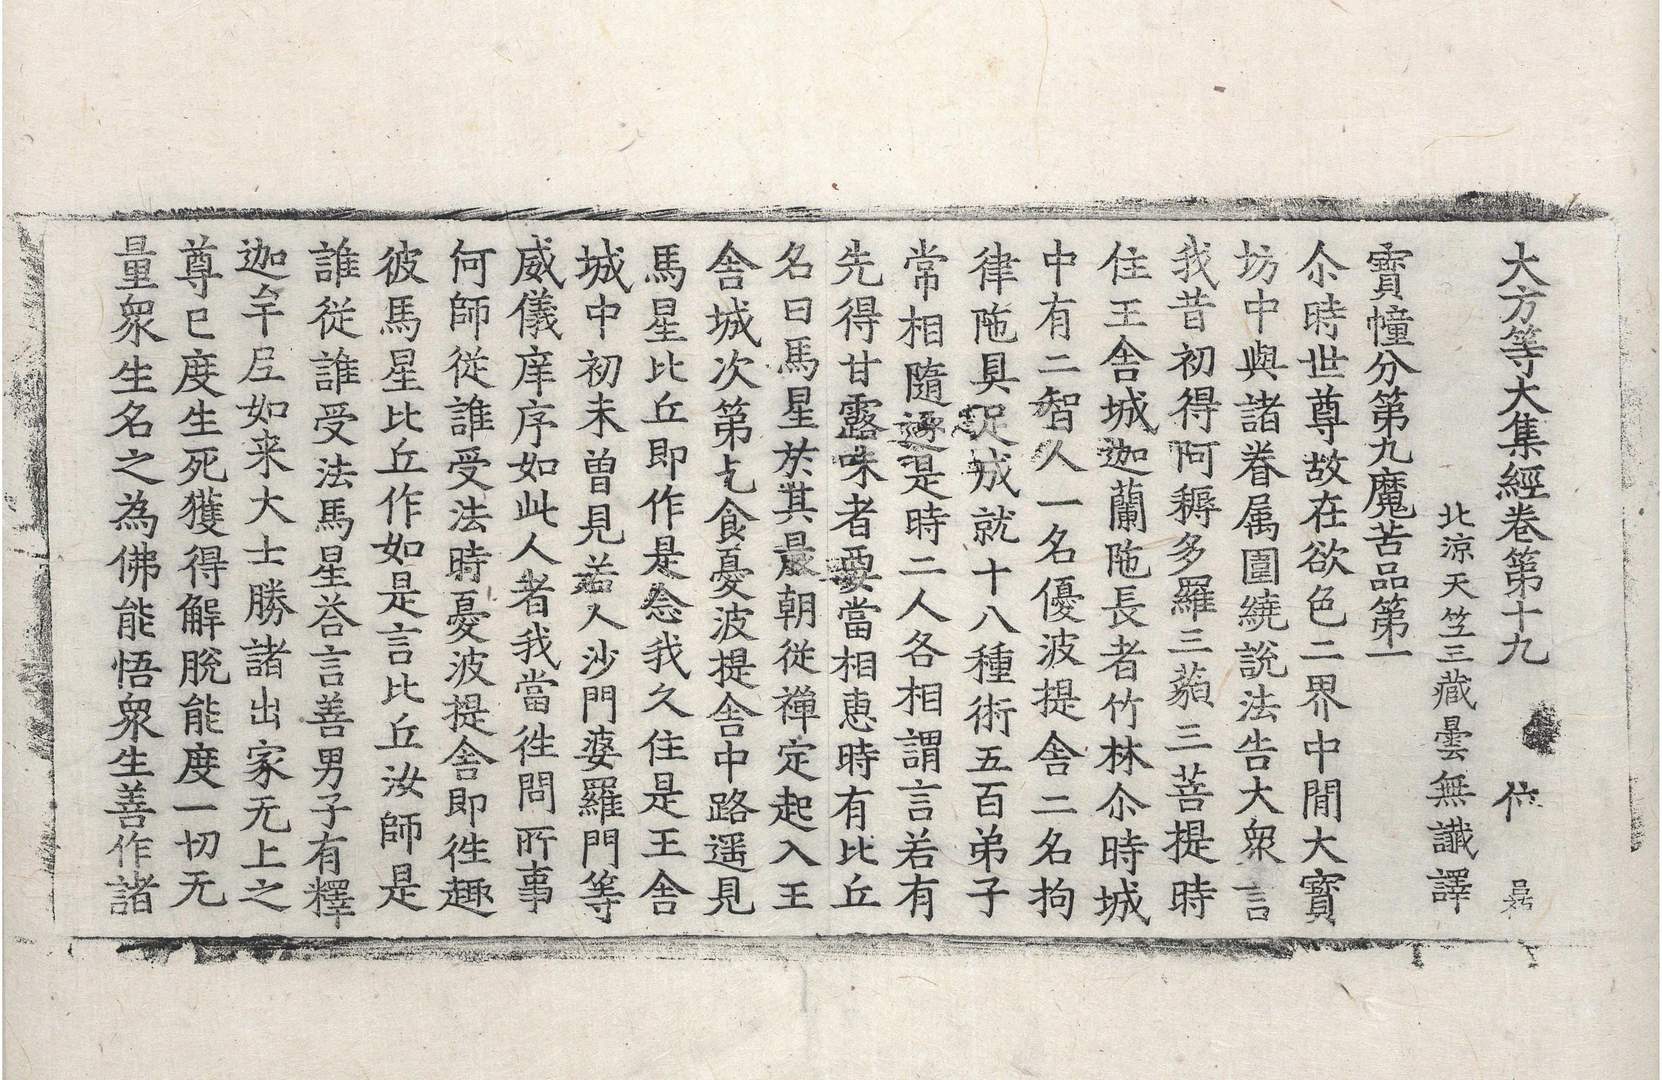 大方等大集經卷第十九 位
北涼天竺三藏曇無讖譯
寶幢分第九魔苦品第一
尒時世尊故在欲色二界中閒大寶
坊中與諸眷属圍繞說法告大衆言
我昔初得阿耨多羅三藐三菩提時
住王舎城迦蘭陁長者竹林尒時城
中有二智人一名優波提舎二名拘
律陁具足成就十八種術五百弟子
常相隨逐是時二人各相謂言若有
先得甘露味者要當相惠時有比丘
名曰馬星於其晨朝從禪定起入王
舎城次第乞食憂波提舎中路遥見
馬星比丘即作是念我久住是王舎
城中初未曽見若人沙門婆羅門等
威儀庠序如此人者我當徃問所事
何師從誰受法時憂波提舎即徃趣
彼馬星比丘作如是言比丘汝師是
誰從誰受法馬星荅言善男子有釋
迦牟尼如来大士勝諸出家无上之
尊已度生死獲得解脫能度一切无
量衆生名之為佛能悟衆生善作諸